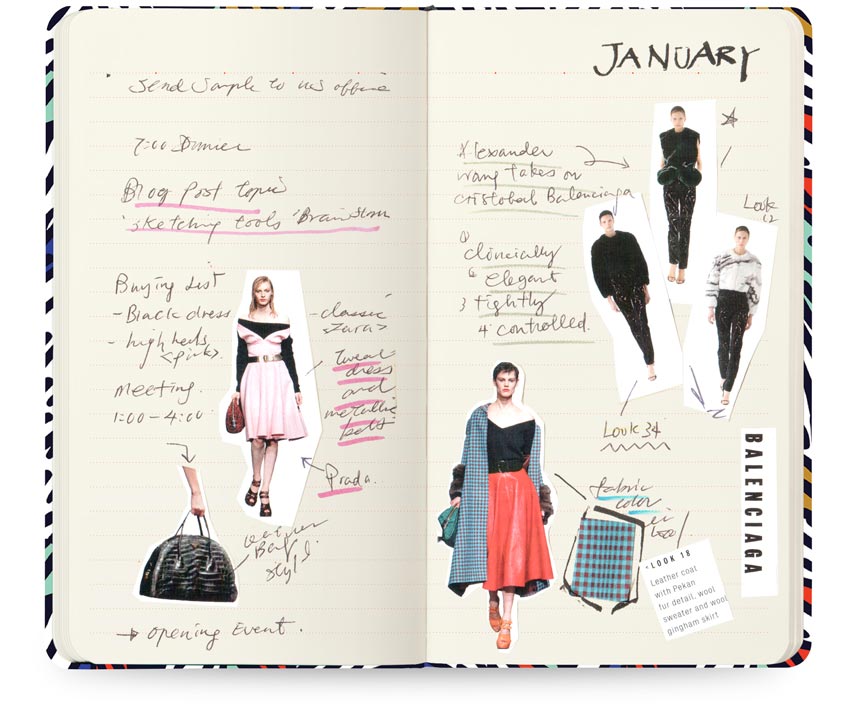 Send Sample to us office
7:00 Dinnier
Blog post topic
'sketching tools 'Brainstorm
Buying List
- Black dress
- high heels
<pink>
meeting.
1:00 - 4:00
- classic
<Zara>
dress
and
metallic
belt
Prada.
Bag
style
opening Event.
JANUARY
Alexsander
wang takes on
cristobal Balenciaga
Look
12
elegant
3 tightly
4 controlled.
Look 34
fabric
color
BALENCIAGA
LOOK 18
Leather coat
with Pekan
fur detail, wool
sweater and wool
gingham skirt